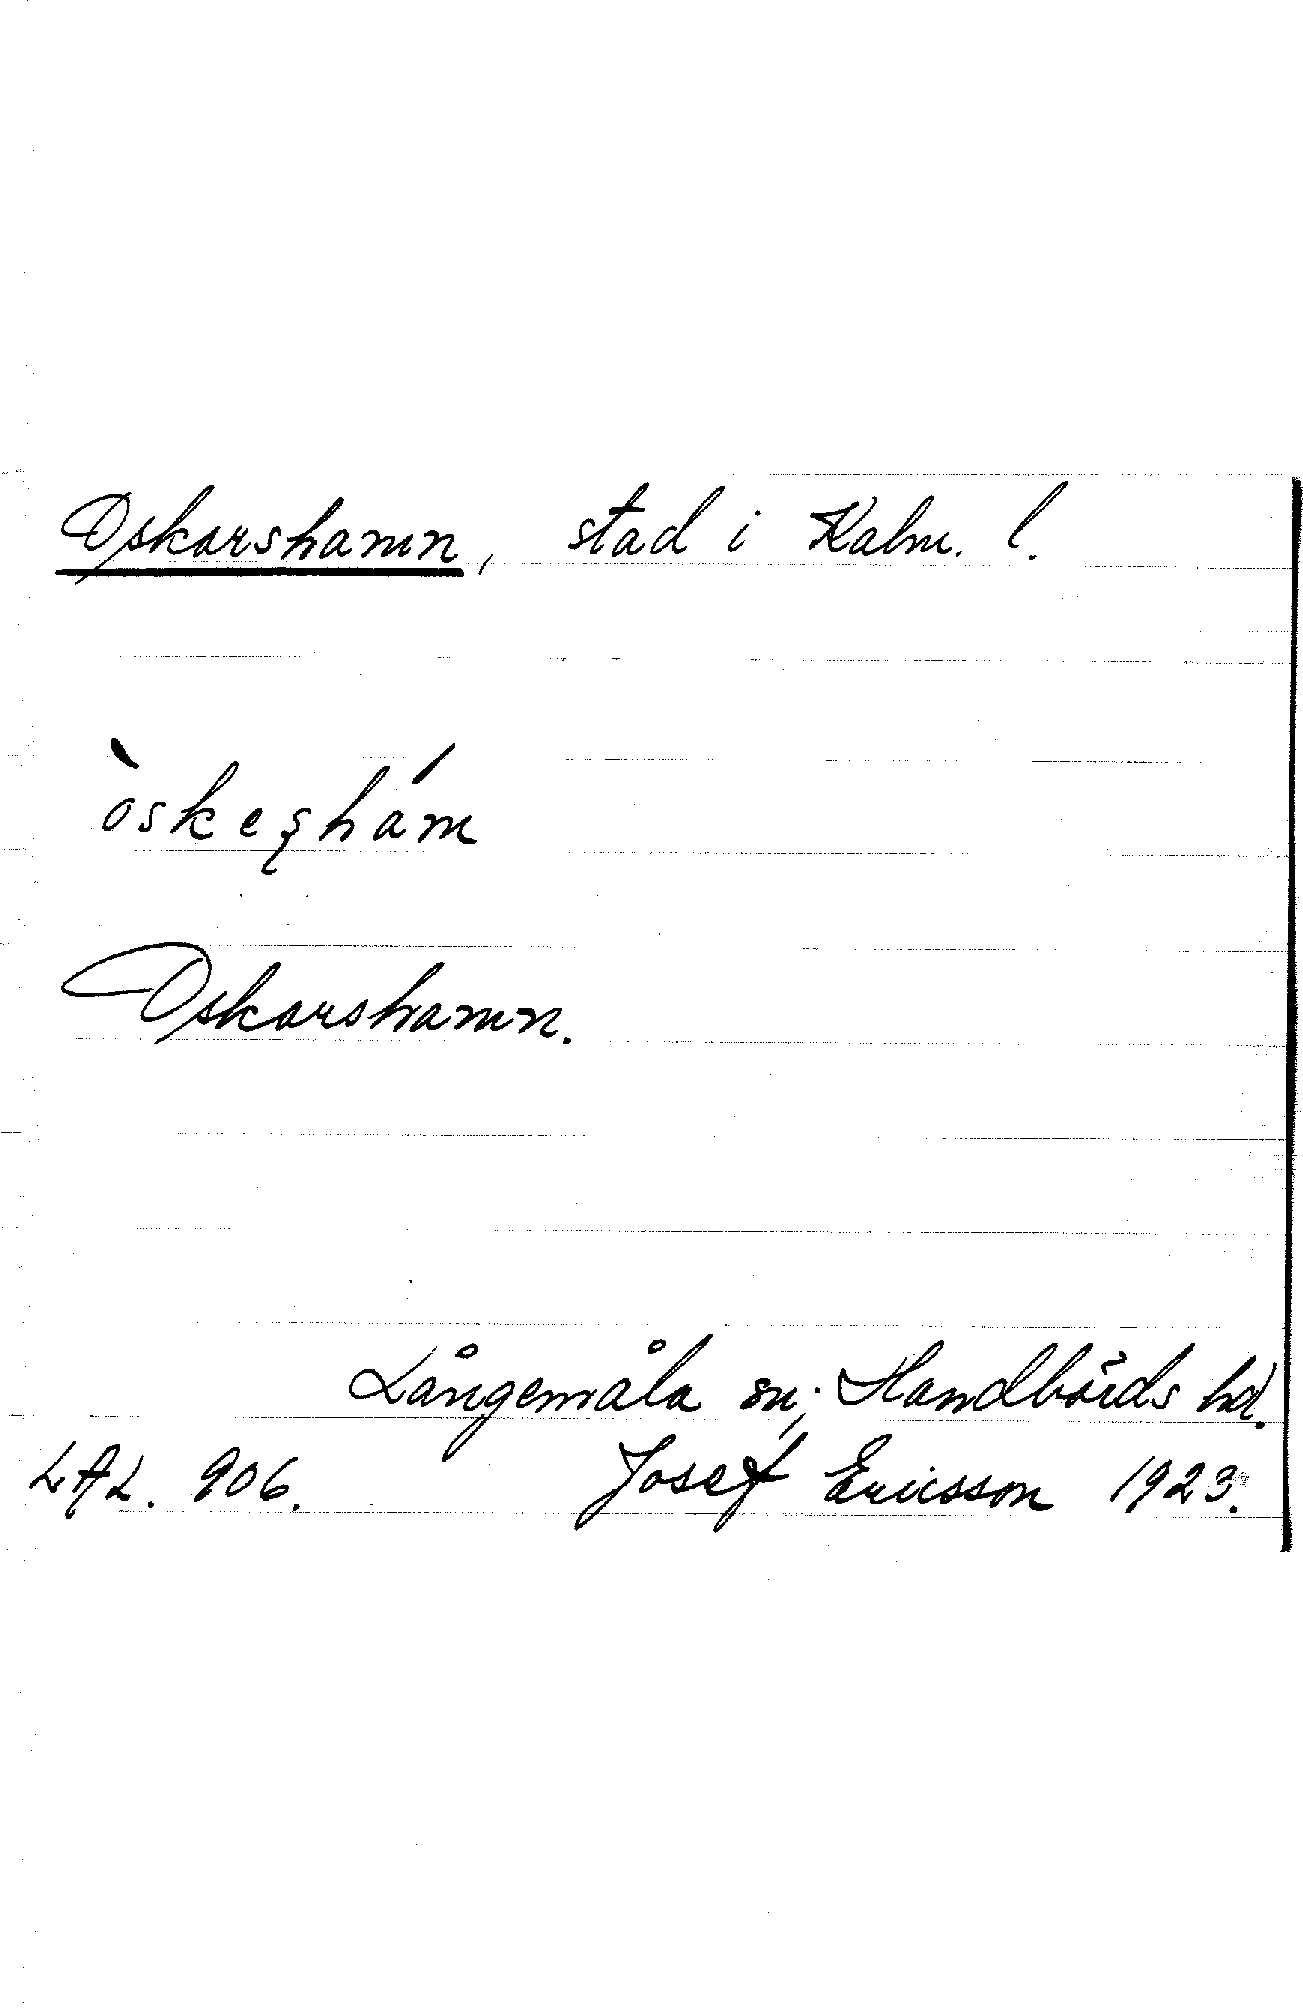 Oskarshamn, stad i Kalm. l.
òskeşhám
Oskarshamn.
Långemåla sn; Handbörds hd.
LAL. 906. Josef Ericsson 1923.